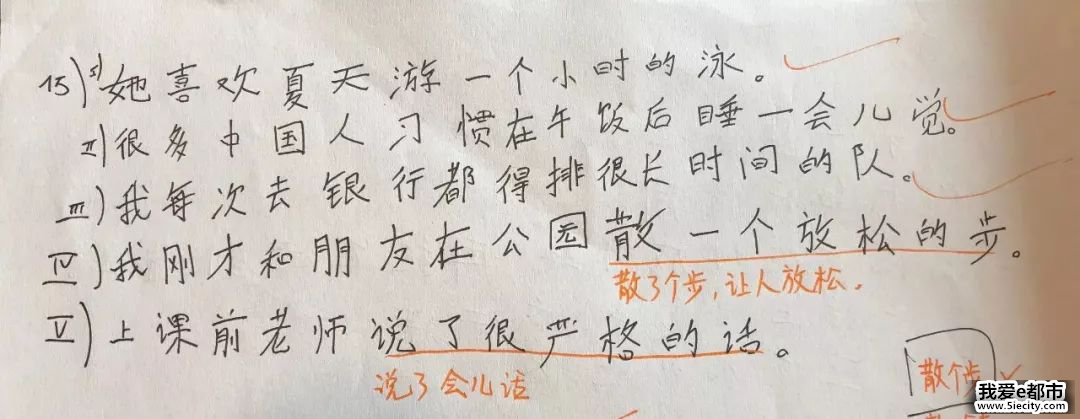 15) I) 她喜欢夏天游一个小时的泳。
II) 很多中国人习惯在午饭后睡一会儿觉。
III) 我每次去银行都得排很长时间的队。
IV) 我刚才和朋友在公园散一个放松的步。
散了个步,让人放松.
V) 上课前老师说了很严格的话。
说了会儿话
散个步
我爱e都市
www.5iecity.com